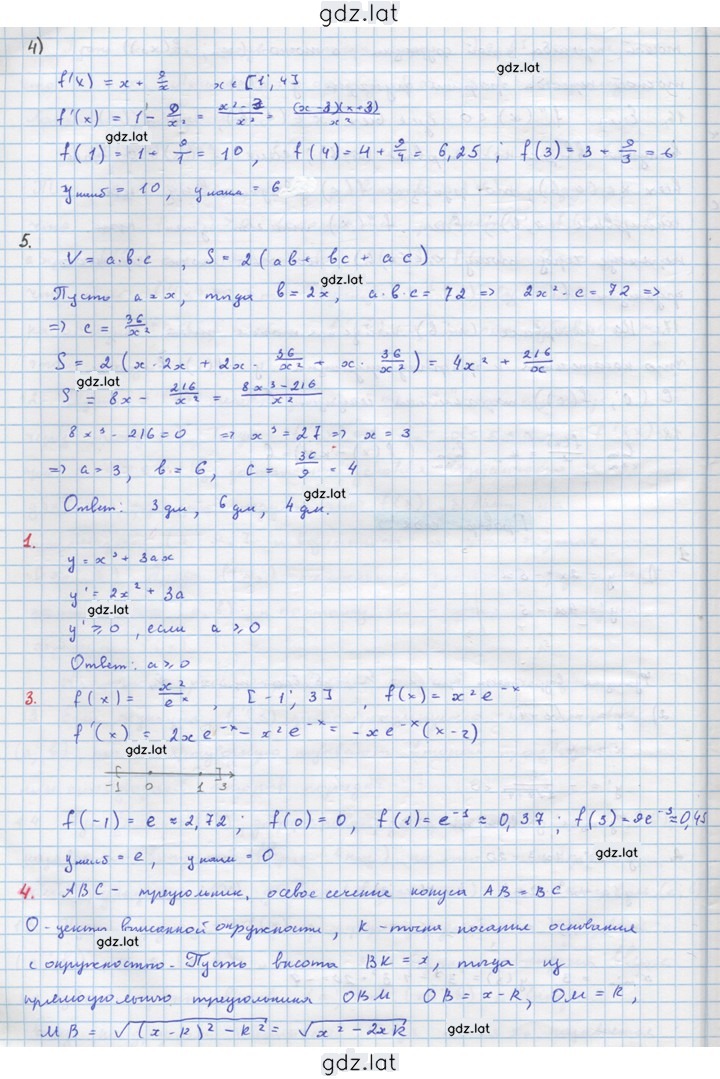 gdz.lat
4)
gdz.lat
f(x) = x + 9/x   x ∈ [1; 4]
f'(x) = 1 - 9/x² = (x² - 3)/x² = (x-3)(x+3)/x²
gdz.lat
f(1) = 1 + 9/1 = 10, f(4) = 4 + 9/4 = 6,25; f(3) = 3 + 9/3 = 6
yнаиб = 10, yнаим = 6
5.
V = a·b·c, S = 2(ab + bc + ac)
gdz.lat
Пусть a = x, тогда b = 2x, a·b·c = 72 => 2x²·c = 72 =>
=> c = 36/x²
S = 2(x·2x + 2x·36/x² + x·36/x²) = 4x² + 216/x
gdz.lat
S' = 8x - 216/x² = (8x³ - 216)/x²
8x³ - 216 = 0 => x³ = 27 => x = 3
=> a = 3, b = 6, c = 36/9 = 4
gdz.lat
Ответ: 3 дм, 6 дм, 4 дм.
1.
y = x³ + 3ax
y' = 2x² + 3a
gdz.lat
y' ≥ 0, если a ≥ 0
Ответ: a ≥ 0
3. f(x) = x²/eˣ, [-1; 3], f(x) = x²e⁻ˣ
f'(x) = 2xe⁻ˣ - x²e⁻ˣ = -xe⁻ˣ(x-2)
gdz.lat
-1 0 1 3
f(-1) = e ≈ 2,72; f(0) = 0, f(1) = e⁻¹ ≈ 0,37; f(3) = 9e⁻³ ≈ 0,45
yнаиб = e, yнаим = 0
gdz.lat
4. ABC - треугольник, осевое сечение конуса AB = BC
O - центр вписанной окружности, K - точка касания основания
gdz.lat
с окружностью. Пусть высота BK = x, тогда из
прямоугольного треугольника OBM OB = x - R, OM = R,
MB = √((x-R)² - R²) = √(x² - 2xR)
gdz.lat
gdz.lat